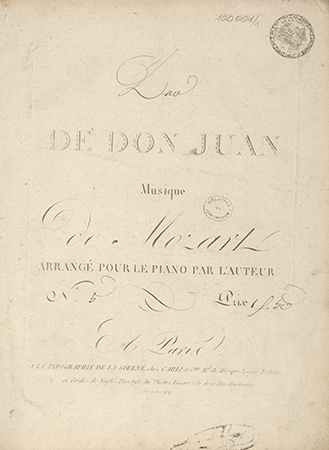 100001/1
Duo
DE DON JUAN
Musique
de Mozart
ARRANGÉ POUR LE PIANO PAR L'AUTEUR
N.° 5 Prix 1 f. 50
A Paris
A LA TYPOGRAPHIE DE LA SIRENE, chez CARLI et C.ie M.d de Musique, Livres Italiens
et Cordes de Naples, Péristyle du Théâtre Favart côté de la Rue Marivaux